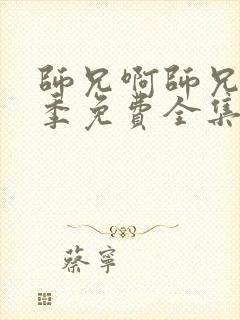 師兄啊師兄
季免費全集
蔡寧